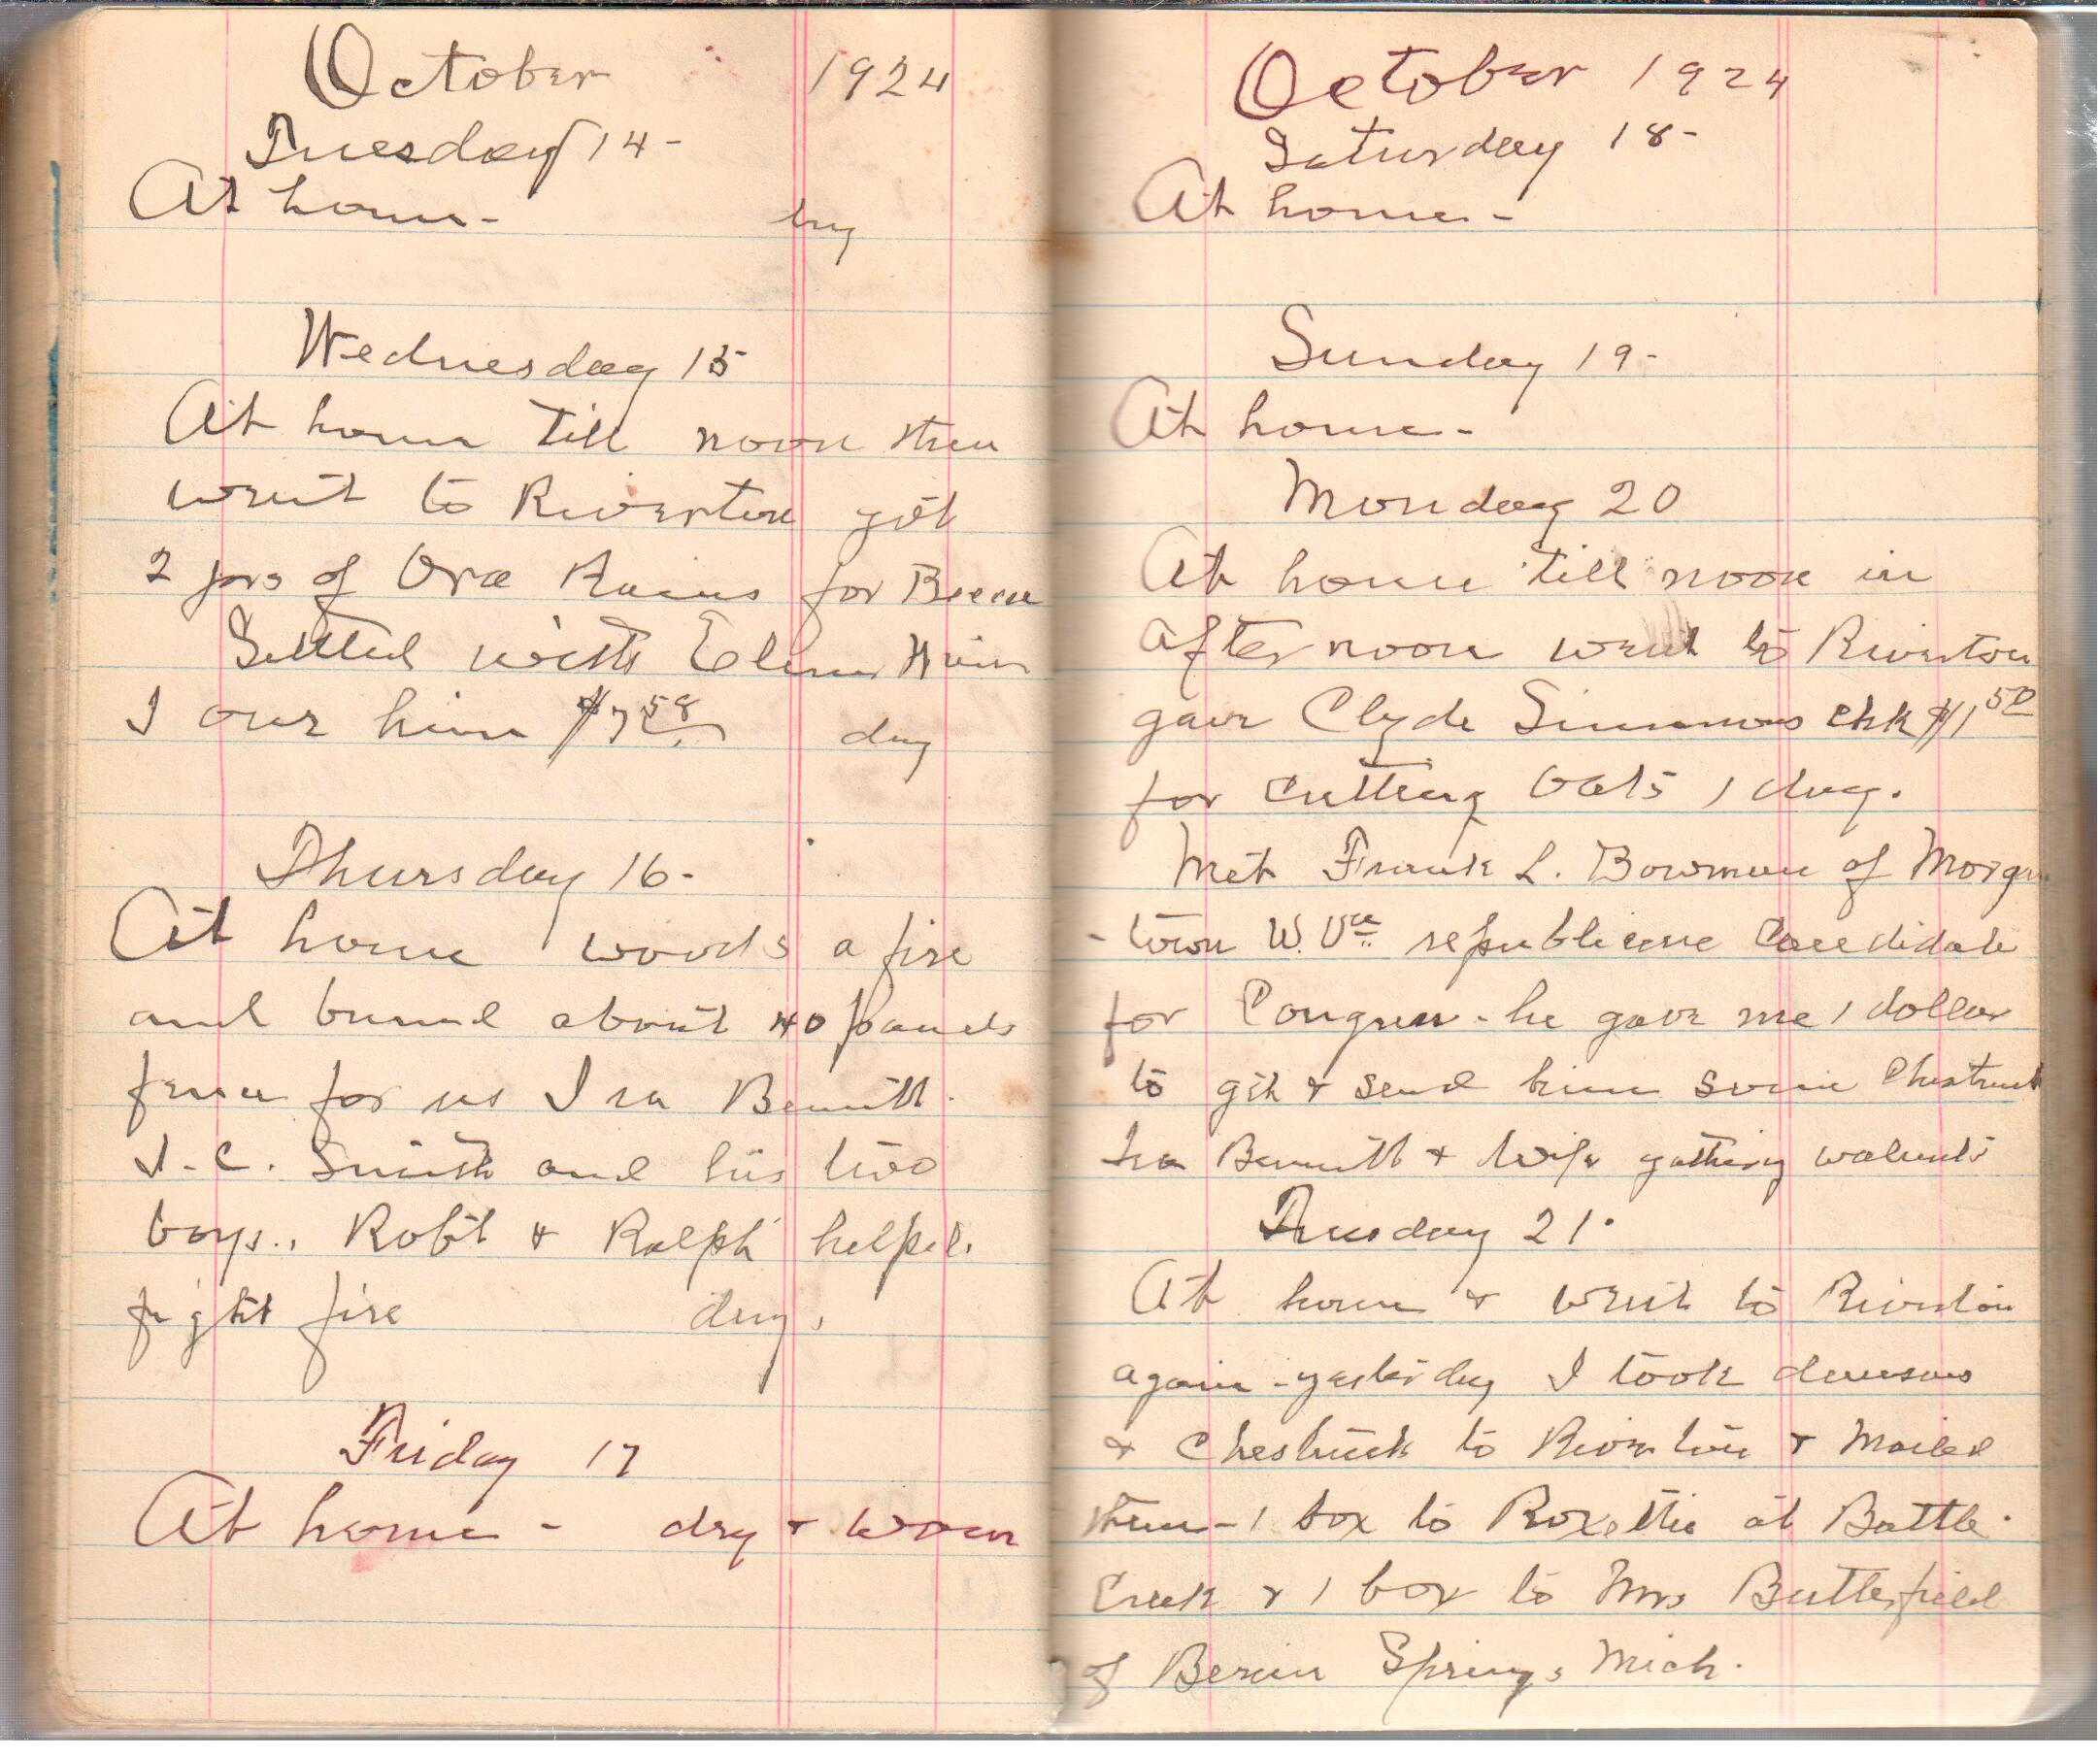 October 1924
Tuesday 14-
At home-
Wednesday 15
At home till noon then
went to Riverton got
2 jars of Ora Raines for
Settled with
I owe him $7 58 dry
Thursday 16-
At home woods a fire
and burned about 40 panels
fence for us Ira Bennett.
I-C. Smith and his two
boys., Robt & Ralph helped.
fight fire dry.
Friday 17
At home - dry & warm
October 1924
Saturday 18-
At home-
Sunday 19-
At home-
Monday 20
At home till noon in
afternoon went to Riverton
gave Clyde Simmons chk $1 50
for cutting oats 1 day.
Met Frank L. Bowman of Morgan
-town W. Va republican Candidate
for Congress - he gave me 1 dollar
to git & send him some Chestnut
Ira Bennett & Wife gathing walnuts
Tuesday 21.
At home & went to Riverton
again - yesterday I took
& Chestnuts to Riverton & Mailed
them - 1 box to Roxettie at Battle
Creek & 1 box to Mrs Butterfield
of Berien Springs Mich.